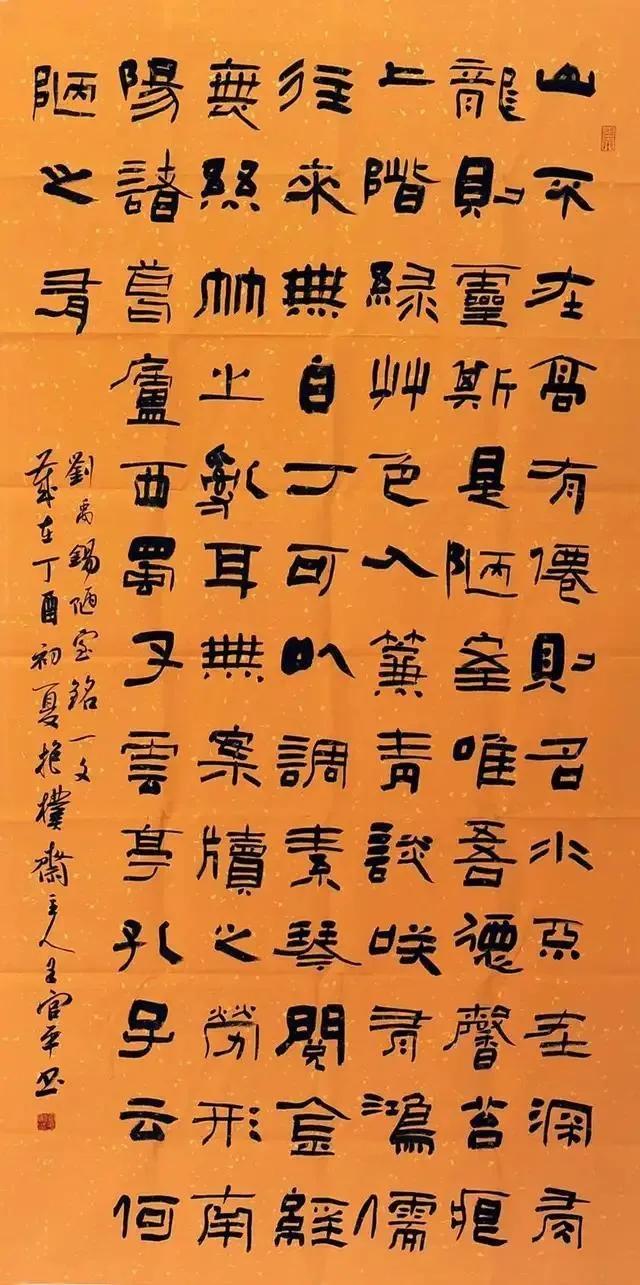 山不在高有僊則名水不在深有
龍則靈斯是陋室唯吾德馨苔痕
上階綠艸色入簾青談咲有鴻儒
往來無白丁可以調素琴閱金經
無絲竹之亂耳無案牘之勞形南
陽諸葛廬西蜀子雲亭孔子云何
陋之有
劉禹錫陋室銘一文
歲在丁酉初夏抱樸齋主人王官平書